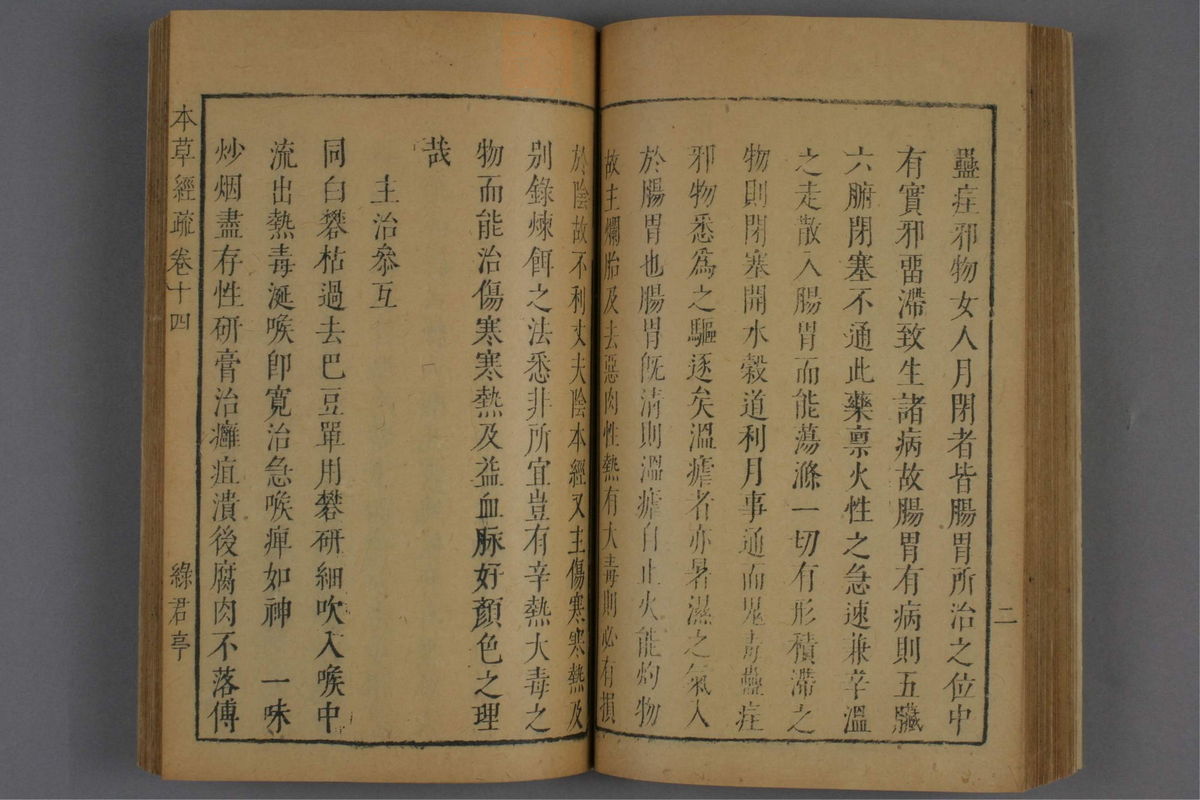 蠱疰邪物女人月閉者皆腸胃所治之位中
有實邪畱滯致生諸病故腸胃有病則五臟
六腑閉塞不通此藥禀火性之急速兼辛溫
之走散入腸胃而能蕩滌一切有形積滯之
物則閉塞開水穀道利月事通而鬼毒蠱疰
邪物悉爲之驅逐矣溫瘧者亦暑濕之氣入
於腸胃也腸胃旣清則溫瘧自止火能灼物
故主爛胎及去惡肉性熱有大毒則必有損
於陰故不利丈夫陰本經又主傷寒寒熱及
別錄煉餌之法悉非所宜豈有辛熱大毒之
物而能治傷寒寒熱及益血脉好顏色之理
哉
主治叅互
同白礬枯過去巴豆單用礬研細吹入喉中
流出熱毒涎喉卽寬治急喉痺如神 一味
炒烟盡存性研膏治癰疽潰後腐肉不落傅
二
本草經疏 卷十四 綠君亭